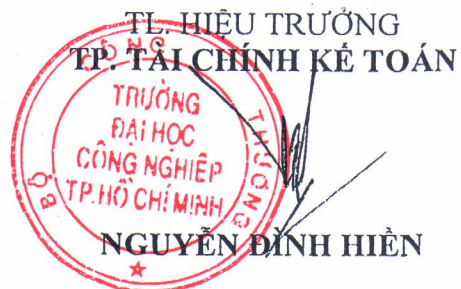 TL. HIỆU TRƯỞNG
TP. TÀI CHÍNH KẾ TOÁN
BỘ CÔNG THƯƠNG
TRƯỜNG
ĐẠI HỌC
CÔNG NGHIỆP
TP.HỒ CHÍ MINH
NGUYỄN ĐÌNH HIỀN